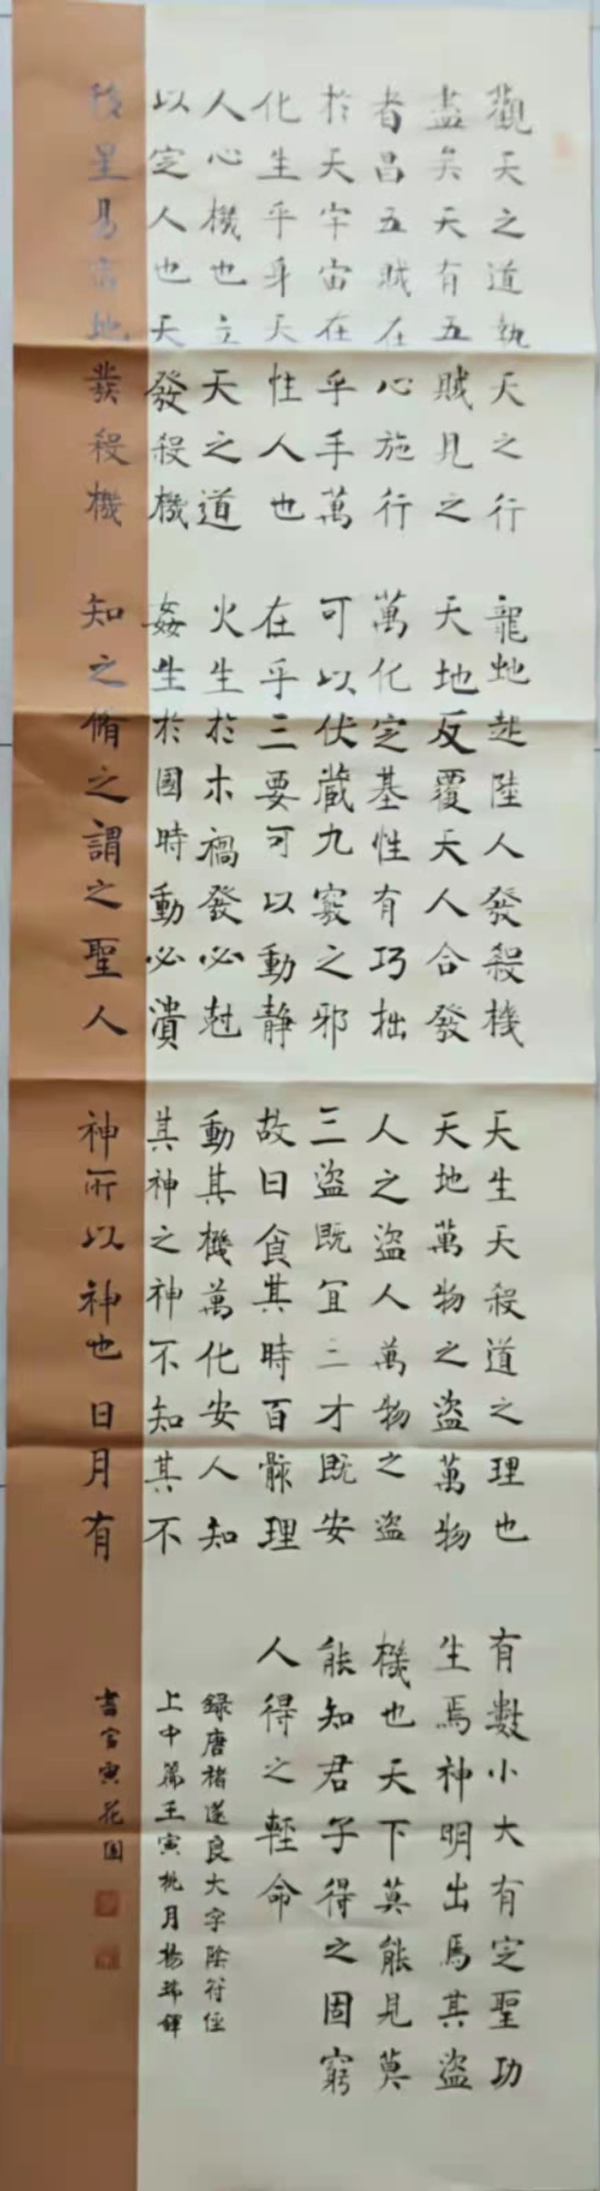 觀天之道執天之行
盡矣天有五賊見之
者昌五賊在心施行
於天宇宙在乎手萬
化生乎身天性人也
人心機也立天之道
以定人也天發殺機
移星易宿地發殺機
龍虵起陸人發殺機
天地反覆天人合發
萬化定基性有巧拙
可以伏藏九竅之邪
在乎三要可以動靜
火生於木禍發必尅
姦生於國時動必潰
知之脩之謂之聖人
天生天殺道之理也
天地萬物之盜萬物
人之盜人萬物之盜
三盜既宜三才既安
故曰食其時百骸理
動其機萬化安人知
其神之神不知其不
神所以神也日月有
有數小大有定聖功
生焉神明出焉其盜
機也天下莫能見莫
能知君子得之固窮
人得之輕命
録唐褚遂良大字陰符經
上中篇壬寅桃月楊
書寅花園